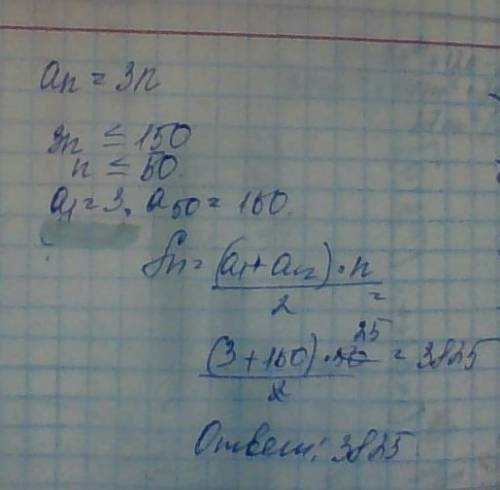 an = 3n
3n ≤ 150
n ≤ 50
a1 = 3, a50 = 150.
Sn = (a1 + an) · n / 2 =
(3 + 150) · 50 25 / 2 = 3825
Ответ: 3825